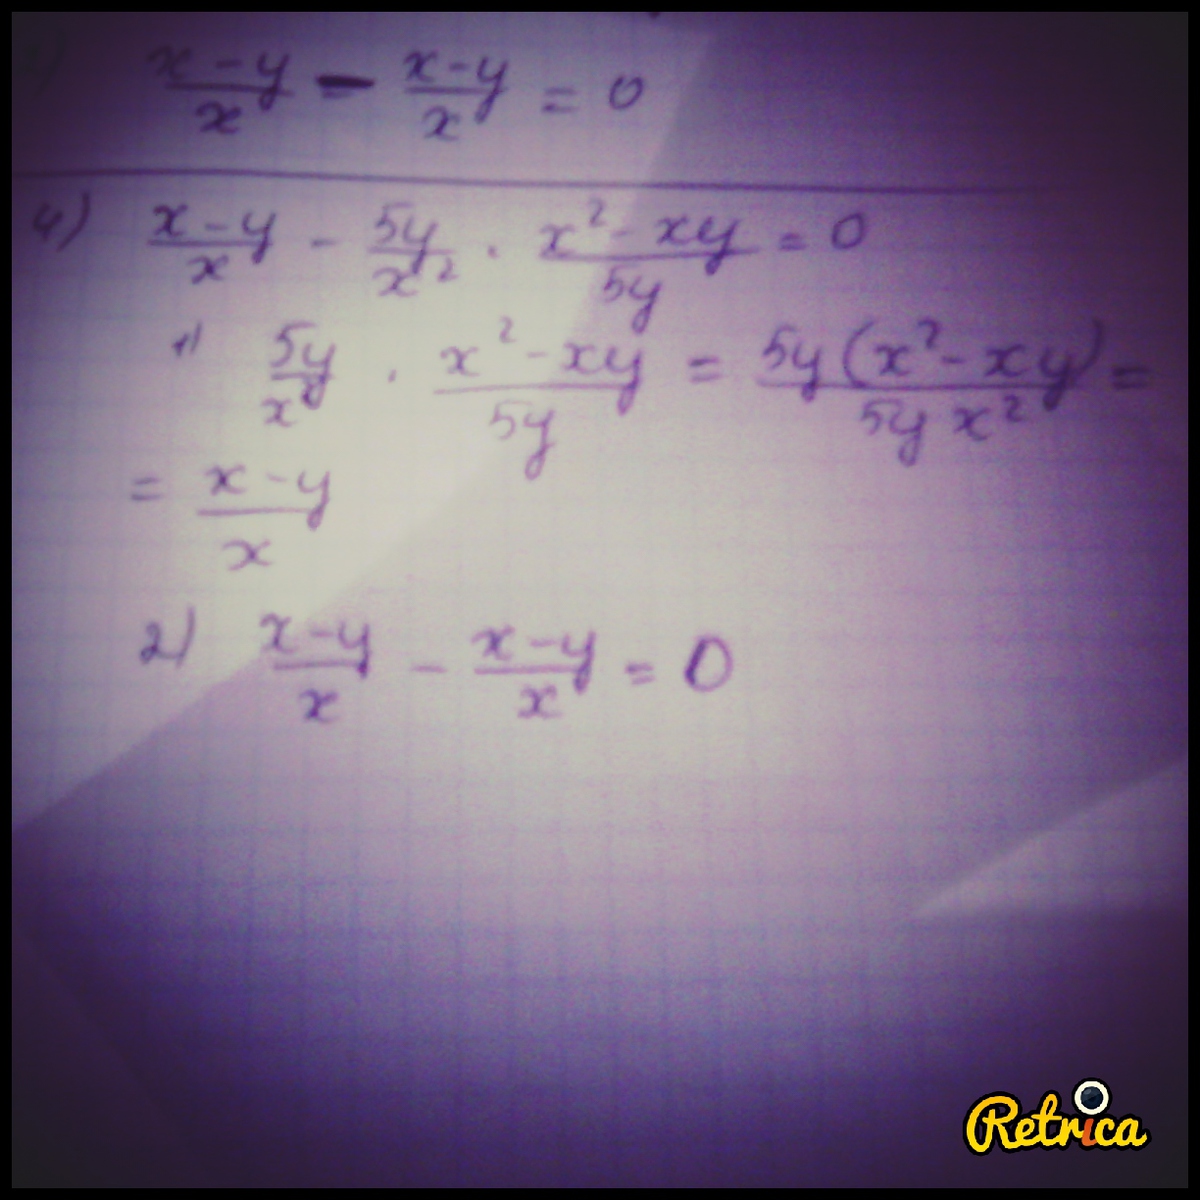 (x-y)/x - (x-y)/x = 0
4) (x-y)/x - 5y/x² · (x²-xy)/5y = 0
1) 5y/x² · (x²-xy)/5y = 5y(x²-xy)/5y x² =
= (x-y)/x
2) (x-y)/x - (x-y)/x = 0
Retrica